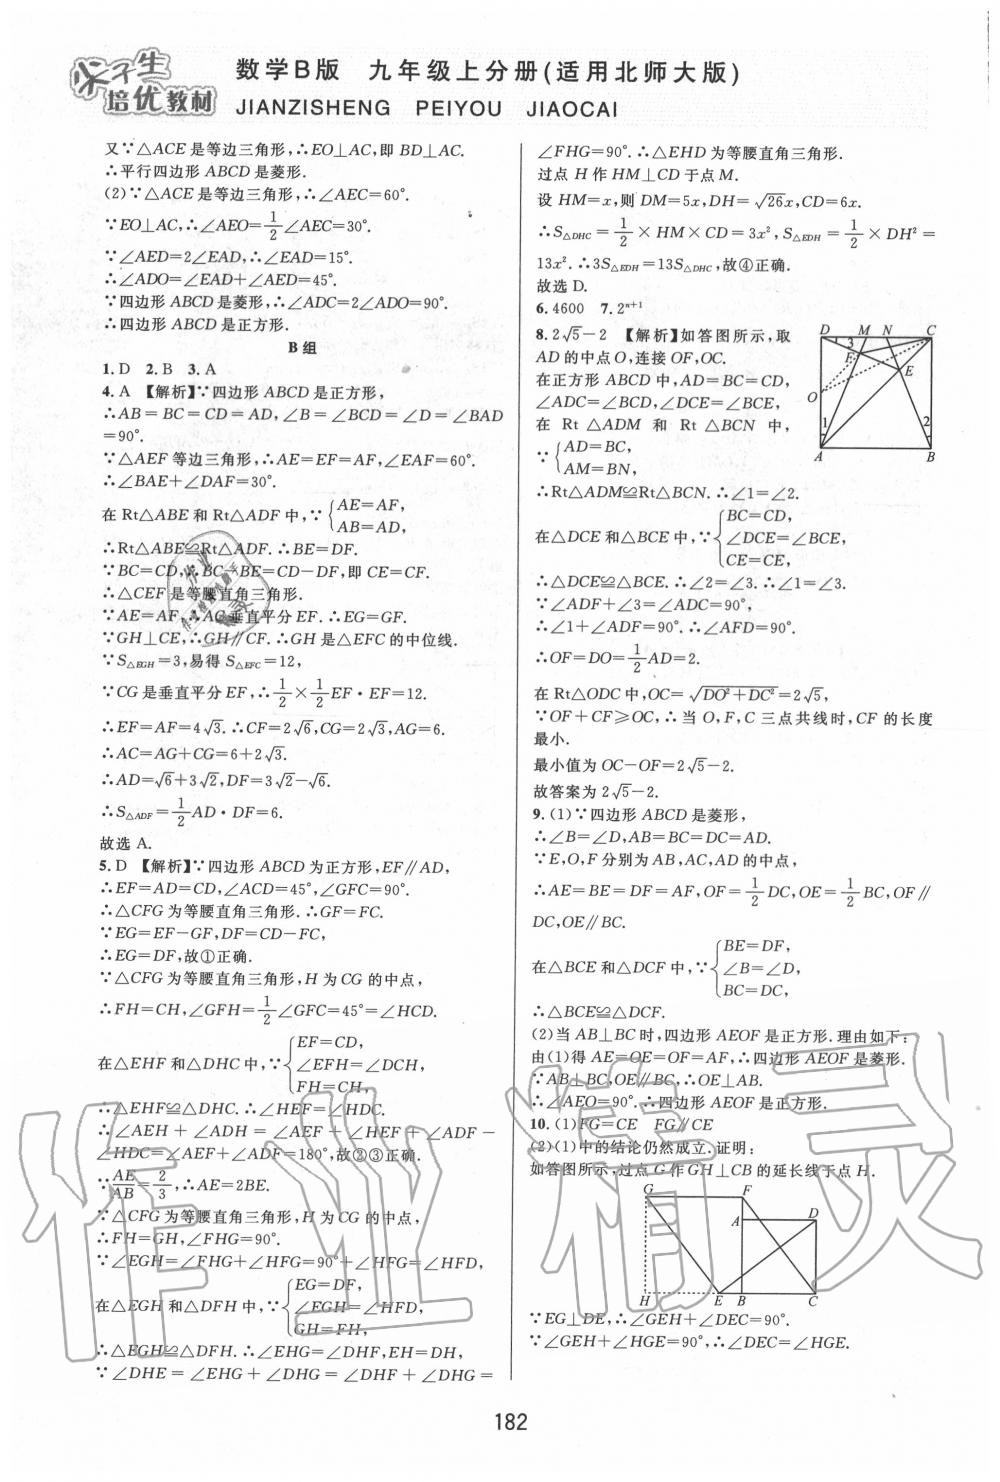 尖子生
培优教材
数学B版 九年级上分册(适用北师大版)
JIANZISHENG PEIYOU JIAOCAI
又∵△ACE是等边三角形,∴EO⊥AC,即BD⊥AC.
∴平行四边形ABCD是菱形.
(2)∵△ACE是等边三角形,∴∠AEC=60°.
∵EO⊥AC,∴∠AEO=1/2∠AEC=30°.
∵∠AED=2∠EAD,∴∠EAD=15°.
∴∠ADO=∠EAD+∠AED=45°.
∵四边形ABCD是菱形,∴∠ADC=2∠ADO=90°.
∴四边形ABCD是正方形.
B组
1. D 2. B 3. A
4. A 【解析】∵四边形ABCD是正方形,
∴AB=BC=CD=AD,∠B=∠BCD=∠D=∠BAD
=90°.
∵△AEF等边三角形,∴AE=EF=AF,∠EAF=60°.
∴∠BAE+∠DAF=30°.
在Rt△ABE和Rt△ADF中,∵{AE=AF,
AB=AD,
∴Rt△ABE≌Rt△ADF.∴BE=DF.
∵BC=CD,∴BC-BE=CD-DF,即CE=CF.
∴△CEF是等腰直角三角形.
∵AE=AF,∴AC垂直平分EF.∴EG=GF.
∵GH⊥CE,∴GH∥CF.∴GH是△EFC的中位线.
∵S△EGH=3,易得S△EFC=12,
∵CG是垂直平分EF,∴1/2×1/2EF·EF=12.
∴EF=AF=4√3.∴CF=2√6,CG=2√3,AG=6.
∴AC=AG+CG=6+2√3.
∴AD=√6+3√2,DF=3√2-√6.
∴S△ADF=1/2AD·DF=6.
故选A.
5. D 【解析】∵四边形ABCD为正方形,EF∥AD,
∴EF=AD=CD,∠ACD=45°,∠GFC=90°.
∴△CFG为等腰直角三角形.∴GF=FC.
∵EG=EF-GF,DF=CD-FC,
∴EG=DF,故①正确.
∵△CFG为等腰直角三角形,H为CG的中点,
∴FH=CH,∠GFH=1/2∠GFC=45°=∠HCD.
在△EHF和△DHC中,∵{EF=CD,
∠EFH=∠DCH,
FH=CH,
∴△EHF≌△DHC.∴∠HEF=∠HDC.
∴∠AEH+∠ADH=∠AEF+∠HEF+∠ADF-
∠HDC=∠AEF+∠ADF=180°,故②③正确.
∵AE/AB=2/3,∴AE=2BE.
∵△CFG为等腰直角三角形,H为CG的中点,
∴FH=GH,∠FHG=90°.
∵∠EGH=∠FHG+∠HFG=90°+∠HFG=∠HFD,
在△EGH和△DFH中,∵{EG=DF,
∠EGH=∠HFD,
GH=FH,
∴△EGH≌△DFH.∴∠EHG=∠DHF,EH=DH,
∵∠DHE=∠EHG+∠DHG=∠DHF+∠DHG=
∠FHG=90°.∴△EHD为等腰直角三角形.
过点H作HM⊥CD于点M.
设HM=x,则DM=5x,DH=√26x,CD=6x.
∴S△DHC=1/2×HM×CD=3x²,S△EDH=1/2×DH²=
13x².∴3S△EDH=13S△DHC,故④正确.
故选D.
6. 4600 7. 2ⁿ⁺¹
8. 2√5-2 【解析】如答图所示,取
AD的中点O,连接OF,OC.
在正方形ABCD中,AD=BC=CD,
∠ADC=∠BCD,∠DCE=∠BCE,
在Rt△ADM和Rt△BCN中,
∵{AD=BC,
AM=BN,
∴Rt△ADM≌Rt△BCN.∴∠1=∠2.
在△DCE和△BCE中,∵{BC=CD,
∠DCE=∠BCE,
CE=CE,
∴△DCE≌△BCE.∴∠2=∠3.∴∠1=∠3.
∵∠ADF+∠3=∠ADC=90°,
∴∠1+∠ADF=90°.∴∠AFD=90°.
∴OF=DO=1/2AD=2.
在Rt△ODC中,OC=√(DO²+DC²)=2√5,
∵OF+CF≥OC,∴当O,F,C三点共线时,CF的长度
最小.
最小值为OC-OF=2√5-2.
故答案为2√5-2.
9. (1)∵四边形ABCD是菱形,
∴∠B=∠D,AB=BC=DC=AD.
∵E,O,F分别为AB,AC,AD的中点,
∴AE=BE=DF=AF,OF=1/2DC,OE=1/2BC,OF∥
DC,OE∥BC.
在△BCE和△DCF中,∵{BE=DF,
∠B=∠D,
BC=DC,
∴△BCE≌△DCF.
(2)当AB⊥BC时,四边形AEOF是正方形.理由如下:
由(1)得AE=OE=OF=AF,∴四边形AEOF是菱形.
∵AB⊥BC,OE∥BC,∴OE⊥AB.
∴∠AEO=90°.∴四边形AEOF是正方形.
10. (1)FG=CE FG∥CE
(2)(1)中的结论仍然成立.证明:
如答图所示,过点G作GH⊥CB的延长线于点H.
G F
A D
H E B C
∵EG⊥DE,∴∠GEH+∠DEC=90°.
∵∠GEH+∠HGE=90°,∴∠DEC=∠HGE.
D M N C
3
F
E
O
1 2
A B
182
作业精灵